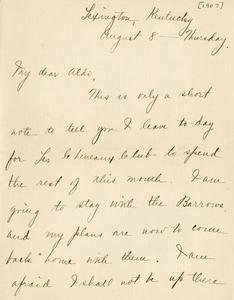 [1907]
Lexington, Kentucky
August 8 — Thursday.
My dear Aldo,
This is only a short
note to tell you I leave to-day
for Les Cheneaux Club to spend
the rest of this month. I am
going to stay with the Barrows
and my plans are now to come
back "home with them. I am
afraid I shall not be up there